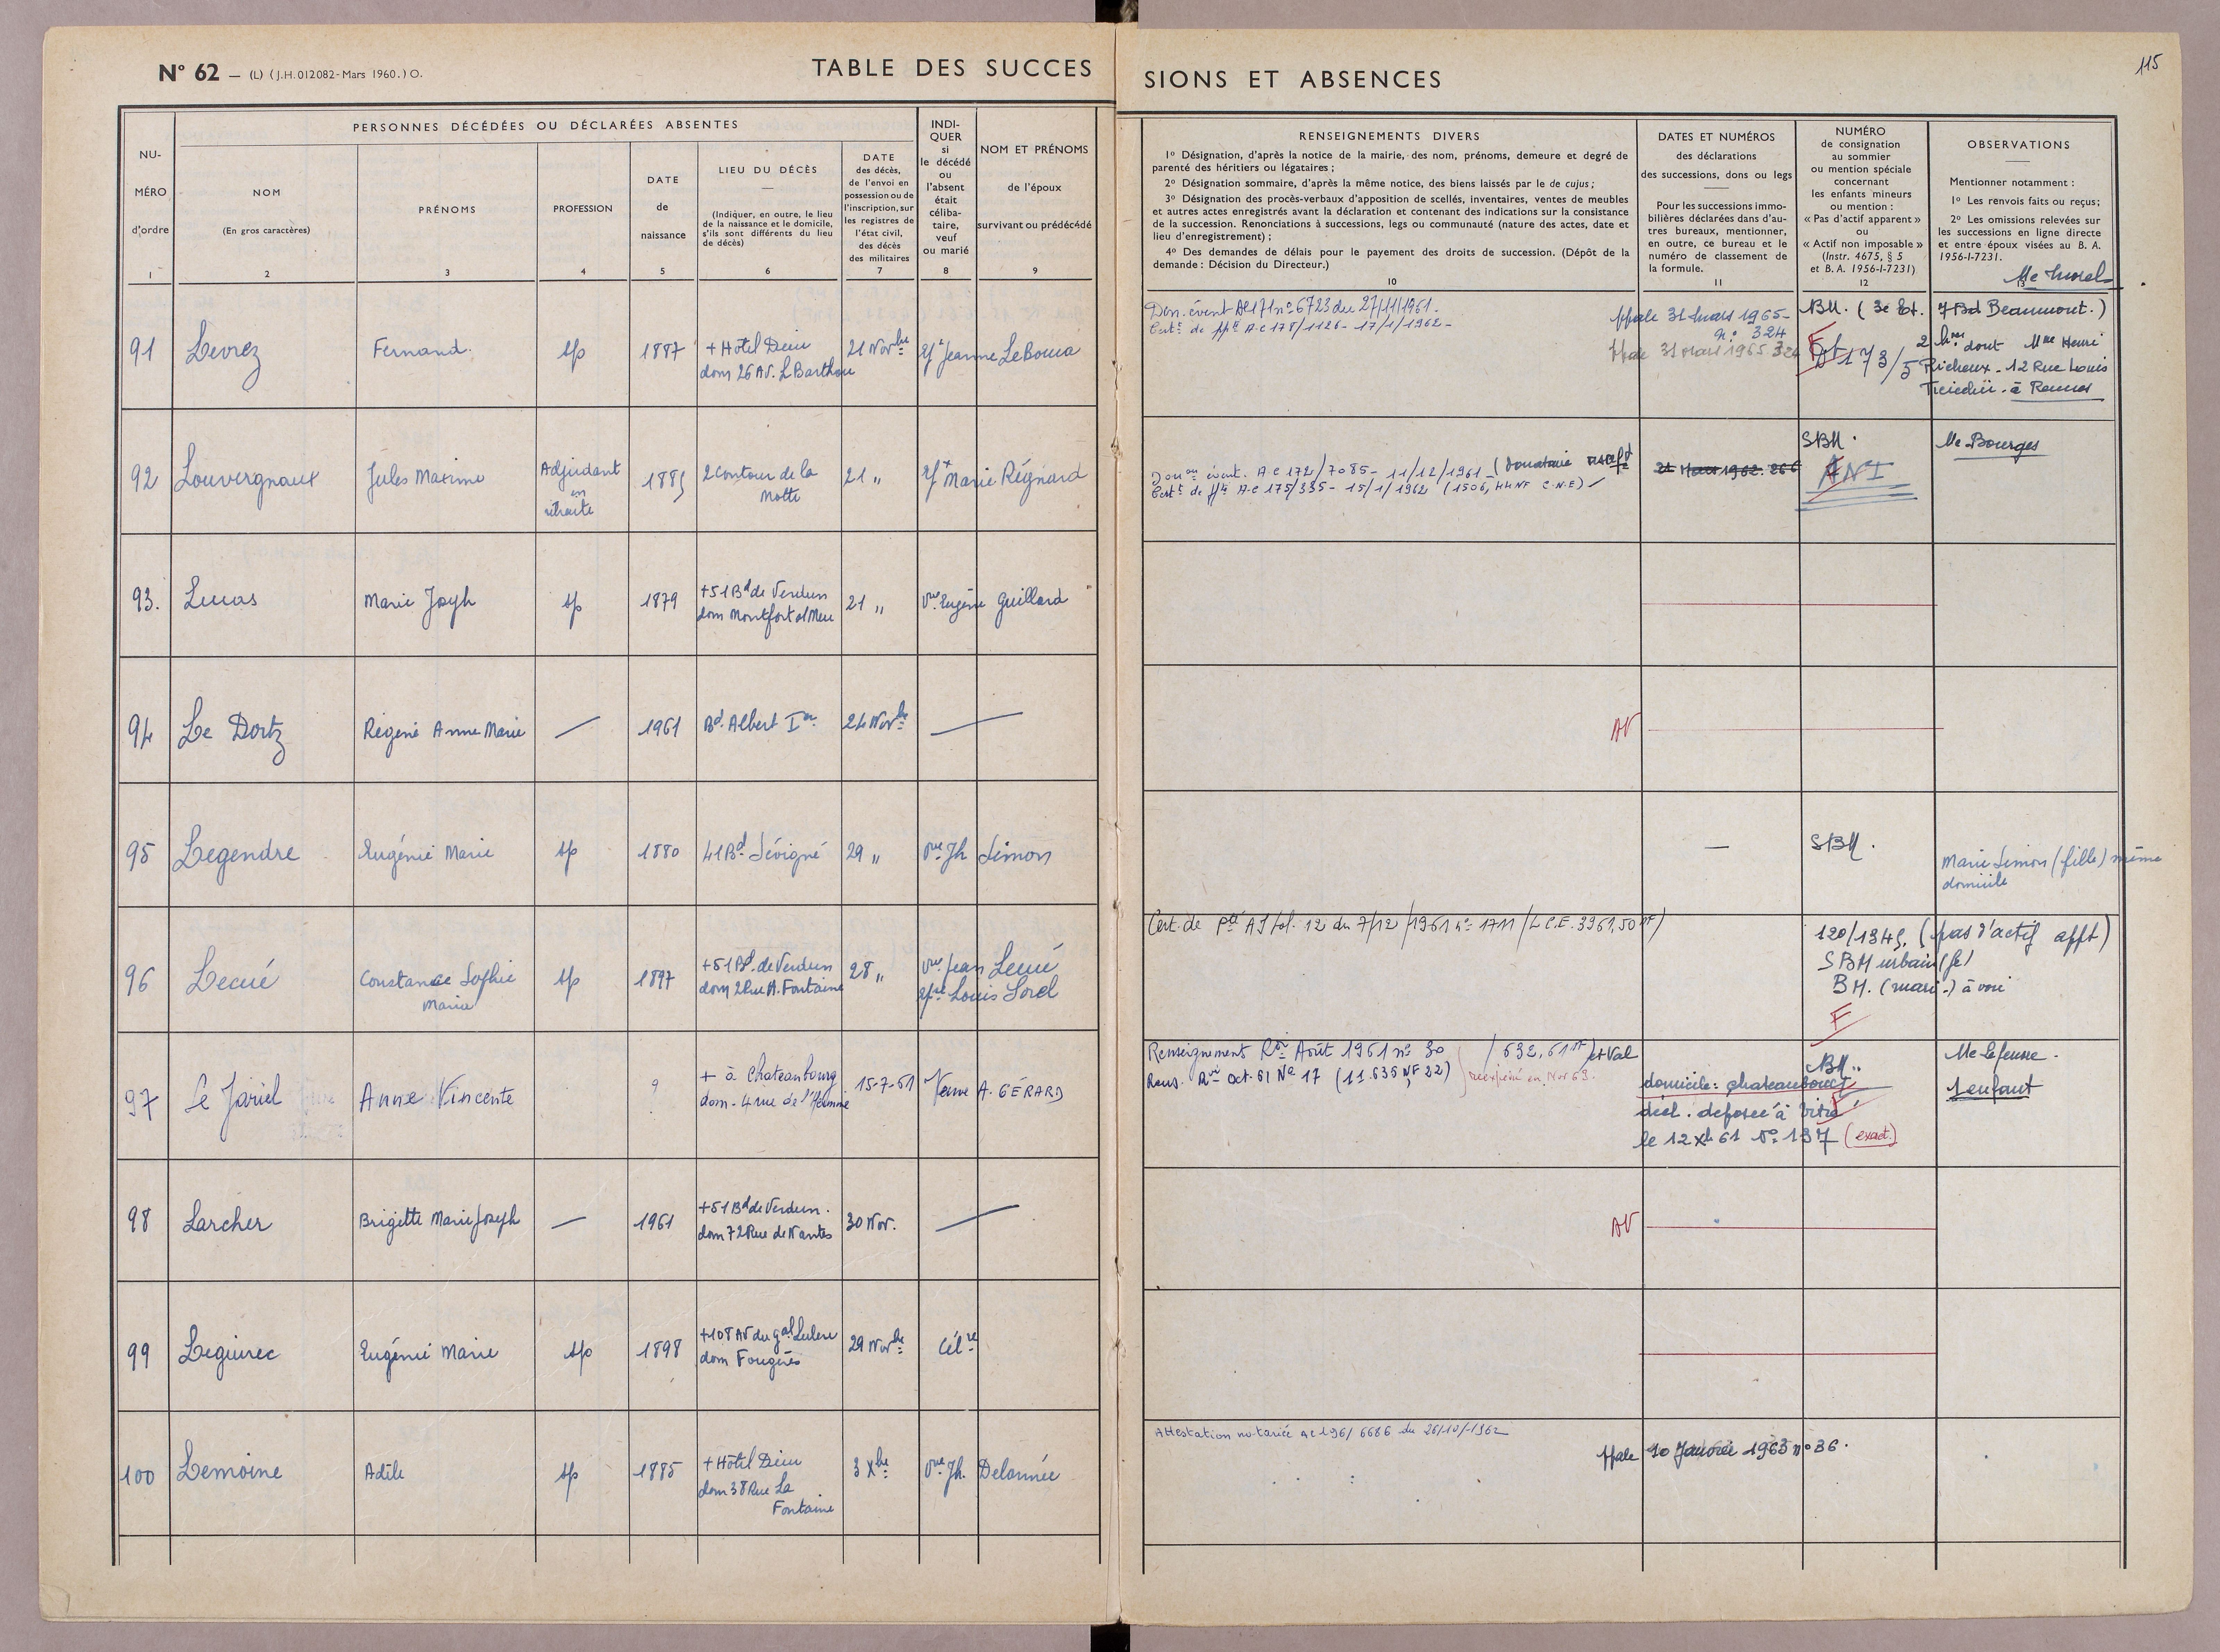 N° 62 — (L) (J.H. 012082 - Mars 1960.) O.
TABLE DES SUCCES
SIONS ET ABSENCES
115
NU-
MÉRO
d'ordre
1
PERSONNES DÉCÉDÉES OU DÉCLARÉES ABSENTES
NOM
(En gros caractères)
2
PRÉNOMS
3
PROFESSION
4
DATE
de
naissance
5
LIEU DU DÉCÈS
(Indiquer, en outre, le lieu
de la naissance et le domicile,
s'ils sont différents du lieu
de décès)
6
DATE
des décès,
de l'envoi en
possession ou de
l'inscription, sur
les registres de
l'état civil,
des décès
des militaires
7
INDI-
QUER
si
le décédé
ou
l'absent
était
céliba-
taire,
veuf
ou marié
8
NOM ET PRÉNOMS
de l'époux
survivant ou prédécédé
9
RENSEIGNEMENTS DIVERS
1° Désignation, d'après la notice de la mairie, des nom, prénoms, demeure et degré de
parenté des héritiers ou légataires ;
2° Désignation sommaire, d'après la même notice, des biens laissés par le de cujus ;
3° Désignation des procès-verbaux d'apposition de scellés, inventaires, ventes de meubles
et autres actes enregistrés avant la déclaration et contenant des indications sur la consistance
de la succession. Renonciations à successions, legs ou communauté (nature des actes, date et
lieu d'enregistrement) ;
4° Des demandes de délais pour le payement des droits de succession. (Dépôt de la
demande : Décision du Directeur.)
10
DATES ET NUMÉROS
des déclarations
des successions, dons ou legs
Pour les successions immo-
bilières déclarées dans d'au-
tres bureaux, mentionner,
en outre, ce bureau et le
numéro de classement de
la formule.
11
NUMÉRO
de consignation
au sommier
ou mention spéciale
concernant
les enfants mineurs
ou mention :
« Pas d'actif apparent »
ou
« Actif non imposable »
(Instr. 4675, § 5
et B. A. 1956-I-7231)
12
OBSERVATIONS
Mentionner notamment :
1° Les renvois faits ou reçus;
2° Les omissions relevées sur
les successions en ligne directe
et entre époux visées au B. A.
1956-I-7231.
13
91
Levrez
Fernand
sp
1887
+ Hôtel Dieu
dom 26 AV. L Barthou
21 Novbre
Jeanne Le Bouca
Don. évent AC 171 n° 6723 du 27/11/1961.
Certt de ppté A.C 178/1126 - 17/1/1962 -
ppale 31 Mars 1965 -
n° 324
ppale 31 Mars 1965 324
BM. ( 3e Bt. 7 Bd Beaumont. )
173/5
dont Mme Henri
Richeux - 12 Rue Louis
à Rennes
92
Louvergnaux
Jules Maxime
Adjudant
en
retraite
1885
2 Contour de la
Motte
21 "
Marie Régnard
Donon évent. A.C 172/7085 - 11/12/1961 -
Certt de ppté A.C 175/335 - 15/1/1962 (1506,44 NF C.N.E)
21 Mars 1962. 266
SBM.
ANI
Me Bourges
93.
Lucas
Marie Joseph
sp
1879
+ 51 Bd de Verdun
dom Montfort s/ Meu
21 "
Vve Eugène Guillard
94
Le Dortz
Régine Anne Marie
—
1961
Bd Albert Ier
24 Novbre
—
AV
95
Legendre
Eugénie Marie
sp
1880
41 Bd Sévigné
29 "
Vve Jh Simon
—
SBM.
Marie Simon (fille) même
domicile
96
Lecué
Constance Sophie
Marie
sp
1897
+ 51 Bd. de Verdun
dom 2 Rue A. Fontaine
28 "
Vve Jean Lecué
Louis Sorel
Cert. de Pté AJ fol. 12 du 7/12/1961 n° 1711 / L C.E. 3961,50 NF)
120/1345, (pas d'actif appt)
SBM urbain
BM. (mari) à voir
F
97
Le Jariel
Anne Vincente
?
+ à Chateaubourg
dom - 4 rue de
15-7-61
Veuve A. GÉRARD
Renseignement Août 1961 n° 30 / 632,61 NF
Rens. Oct. 61 N° 17 (11.636 NF 22)
domicile : chateaubourg
décl. déposée à Vitré
le 12 Xbre 61 N° 137 (exact.)
BM..
Me Lefeuvre -
1 enfant
98
Larcher
Brigitte Marie Joseph
—
1961
+ 51 Bd de Verdun.
dom 72 Rue de Nantes
30 Nov.
—
AV
99
Leguirec
Eugénie Marie
sp
1898
+ 108 AV du Gal Leclerc
dom Fougères
29 Novbre
Célre
100
Lemoine
Adèle
sp
1885
+ Hôtel Dieu
dom 38 Rue La
Fontaine
3 Xbre
Vve Jh. Delaunée
Attestation notariée AC 196/6686 du 26/10/1962
ppale 10 Janvier 1963 n° 36.